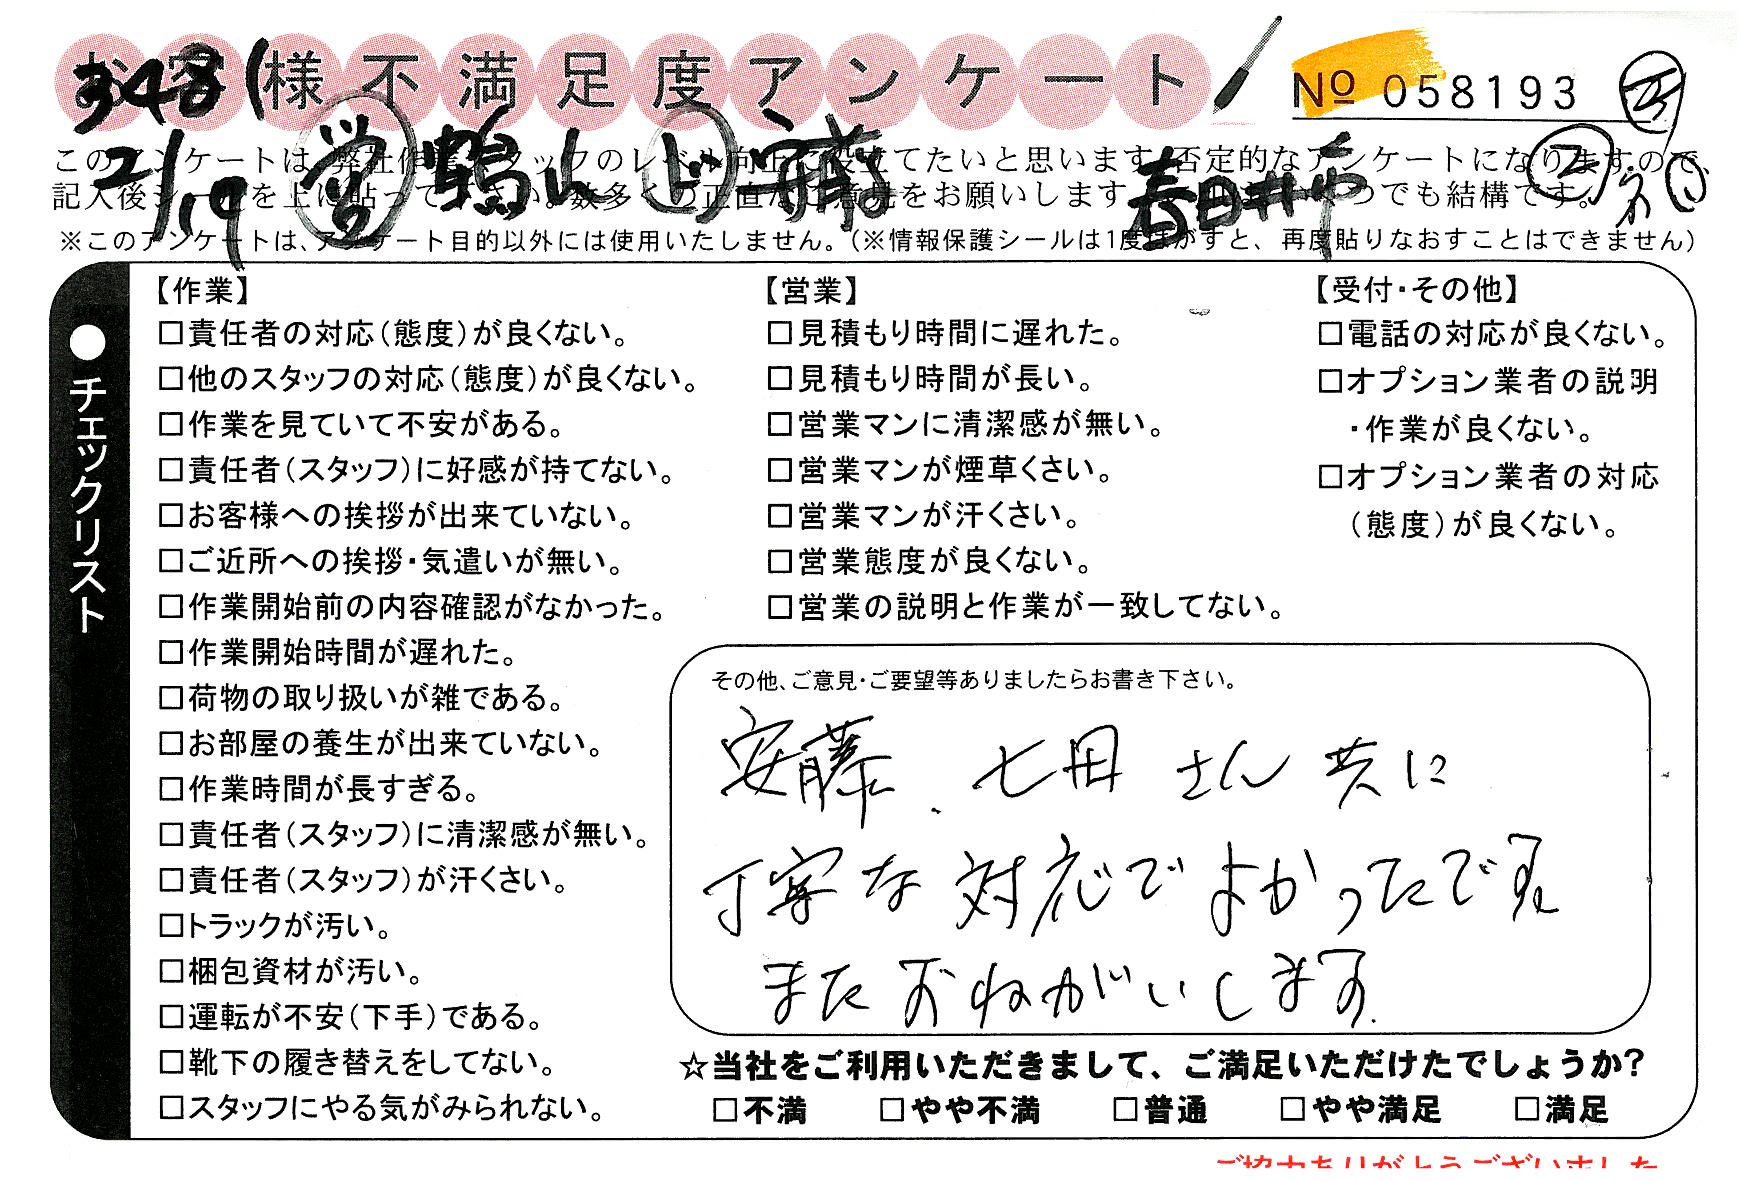 お客様不満足度アンケート
No 058193
3481
2/19 営 鶴山 ド 安藤 春日井市
このアンケートは、弊社作業スタッフのレベル向上に役立てたいと思います。否定的なアンケートになりますので、
記入後シールを上に貼って下さい。数多くの正直なご意見をお願いします。
つでも結構です。
※このアンケートは、アンケート目的以外には使用いたしません。（※情報保護シールは1度はがすと、再度貼りなおすことはできません）
●チェックリスト
【作業】
□責任者の対応（態度）が良くない。
□他のスタッフの対応（態度）が良くない。
□作業を見ていて不安がある。
□責任者（スタッフ）に好感が持てない。
□お客様への挨拶が出来ていない。
□ご近所への挨拶・気遣いが無い。
□作業開始前の内容確認がなかった。
□作業開始時間が遅れた。
□荷物の取り扱いが雑である。
□お部屋の養生が出来ていない。
□作業時間が長すぎる。
□責任者（スタッフ）に清潔感が無い。
□責任者（スタッフ）が汗くさい。
□トラックが汚い。
□梱包資材が汚い。
□運転が不安（下手）である。
□靴下の履き替えをしてない。
□スタッフにやる気がみられない。
【営業】
□見積もり時間に遅れた。
□見積もり時間が長い。
□営業マンに清潔感が無い。
□営業マンが煙草くさい。
□営業マンが汗くさい。
□営業態度が良くない。
□営業の説明と作業が一致してない。
【受付・その他】
□電話の対応が良くない。
□オプション業者の説明
・作業が良くない。
□オプション業者の対応
（態度）が良くない。
その他、ご意見・ご要望等ありましたらお書き下さい。
安藤、七田さん共に
丁寧な対応でよかったです
またおねがいします.
☆当社をご利用いただきまして、ご満足いただけたでしょうか?
□不満 □やや不満 □普通 □やや満足 □満足
ご協力ありがとうございました